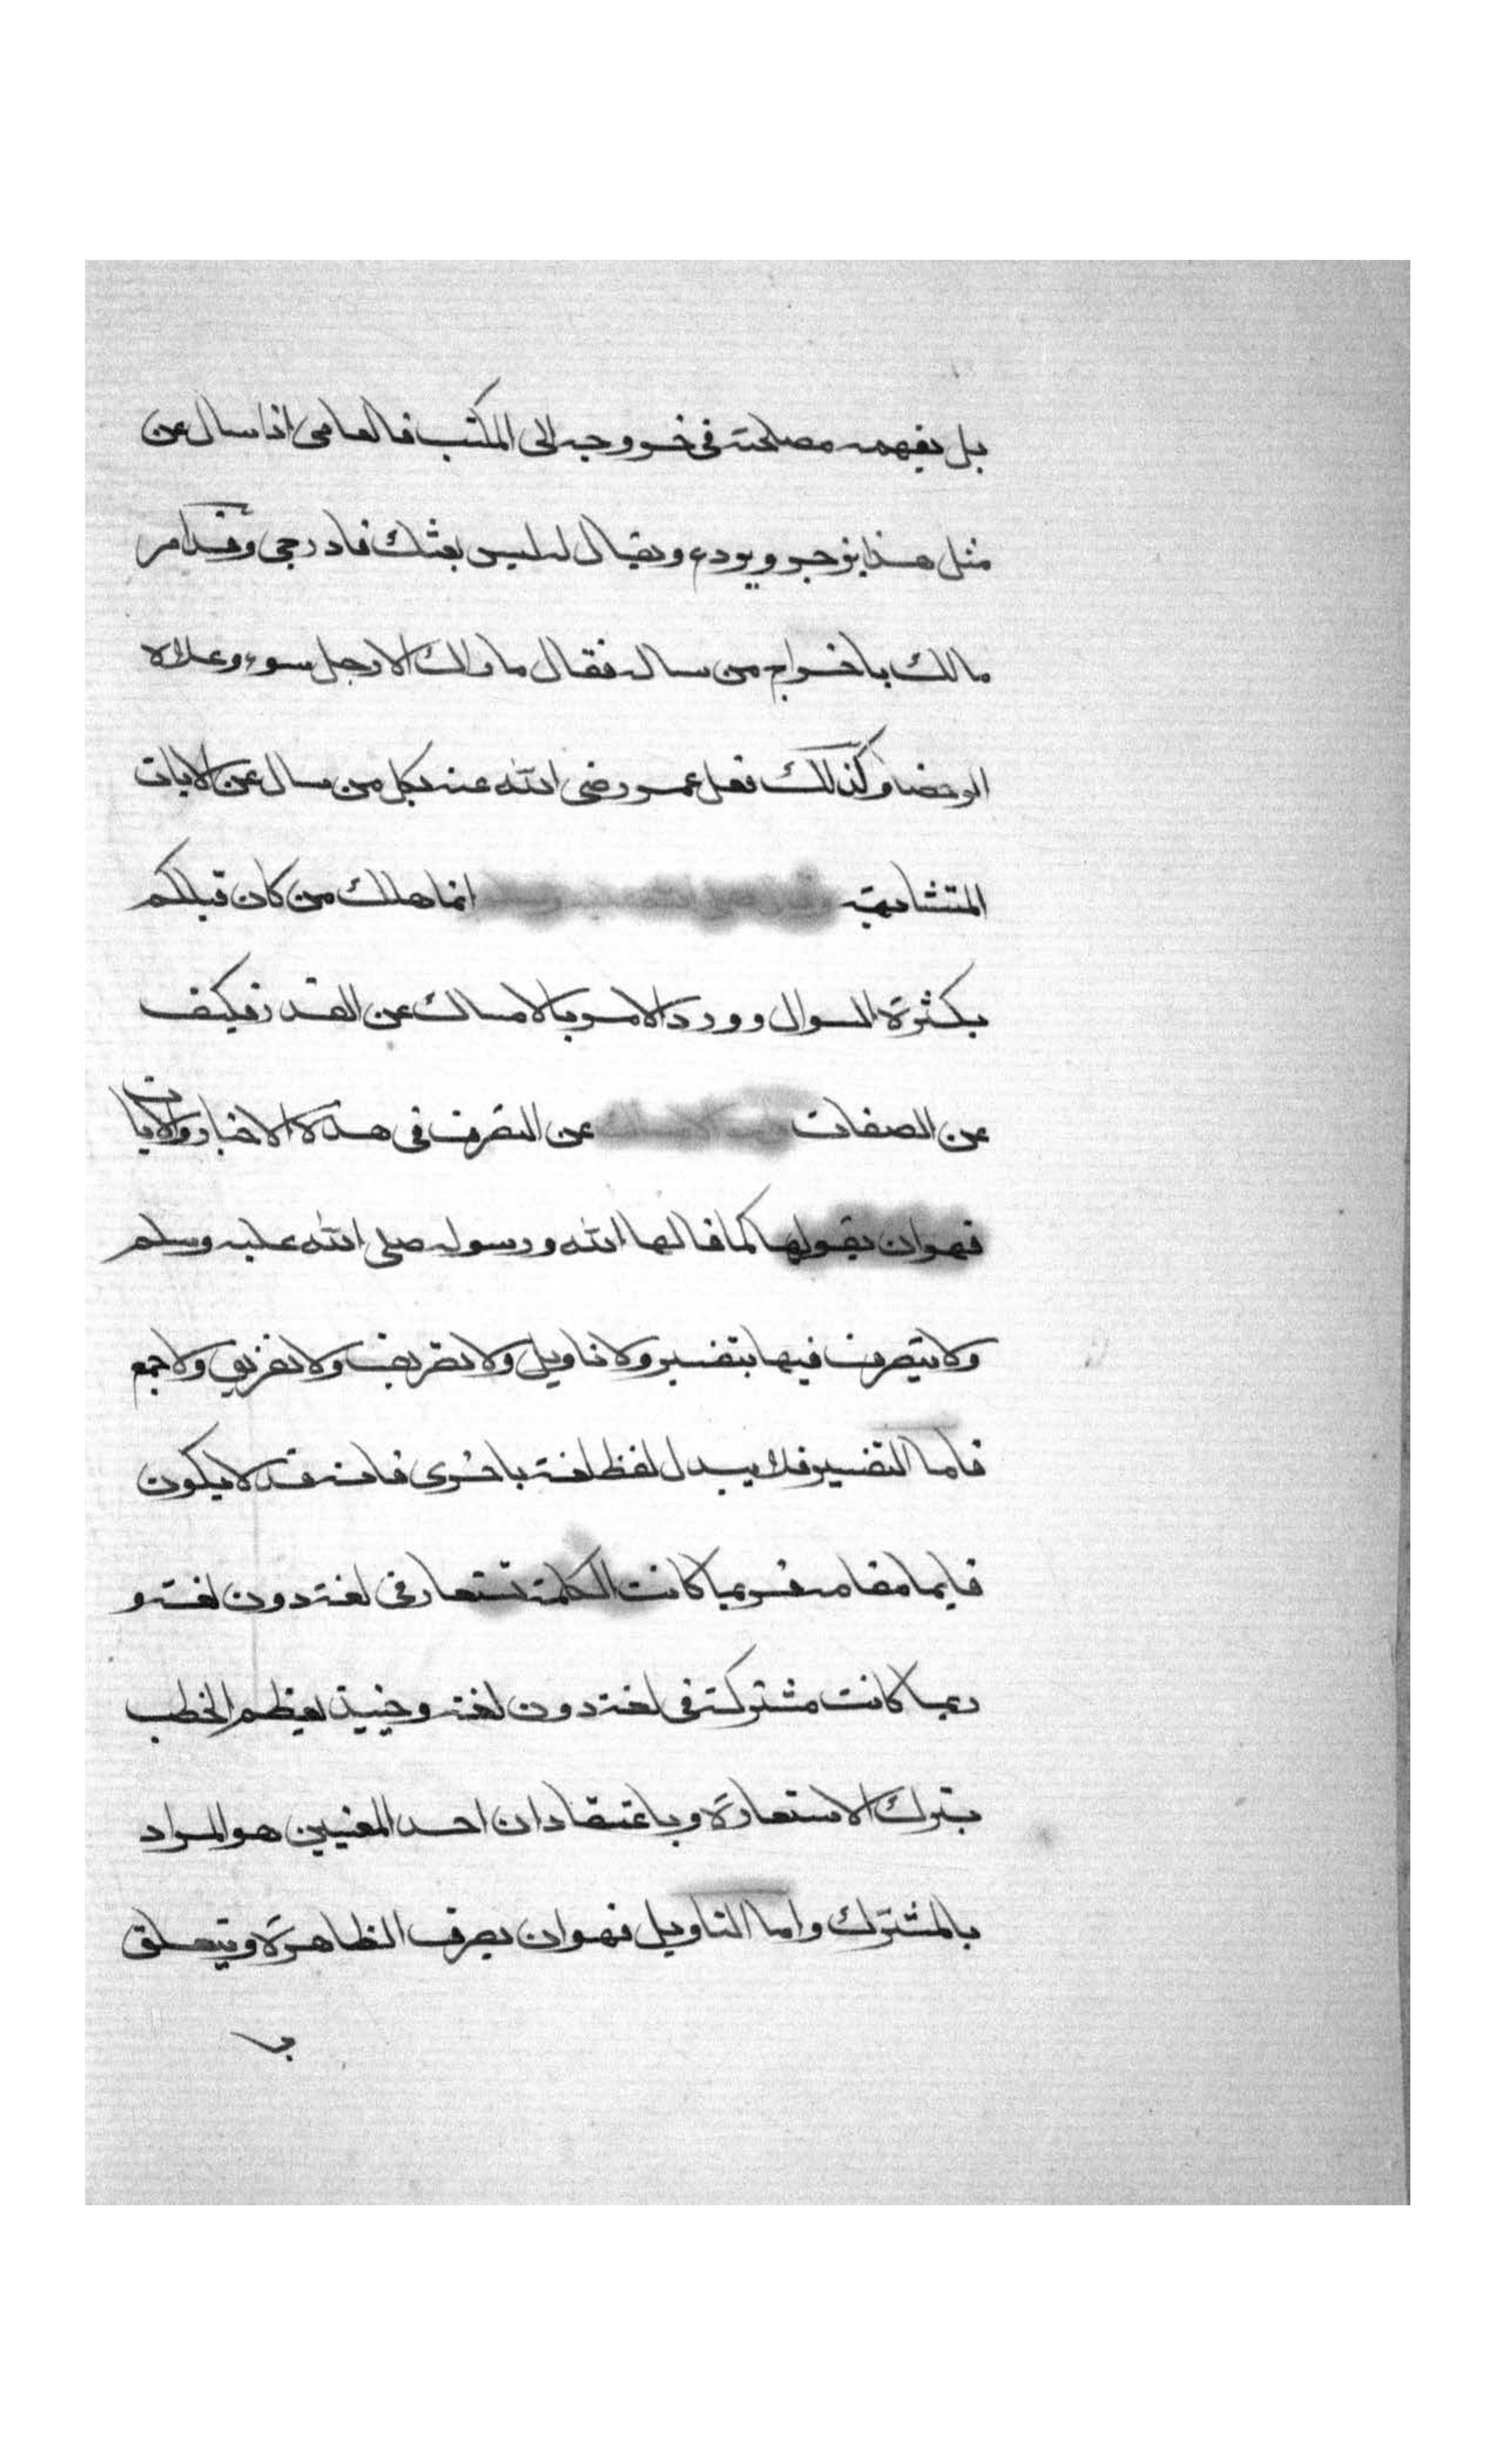 بل يفهمه مصلحته في خروجه الى المكتب فالعامي اذا سال عن
مثل هذا يزجر ويودع ويقال له ليس بعثك فادرجي وقد امر
مالك باخراج من ساله فقال ما اراك الا رجل سوء وعلاه
الرحضا وكذلك فعل عمر رضي الله عنه بكل من سال عن الايات
المتشابهة وقال صلى الله عليه وسلم انما هلك من كان قبلكم
بكثرة السوال وورد الامر بالامساك عن القدر فكيف
عن الصفات الامساك عن التصرف في هذه الاخبار والايات
فهو ان يقولها كما قالها الله ورسوله صلى الله عليه وسلم
ولا يتصرف فيها بتفسير ولا تاويل ولا تصريف ولا تفريق ولا جمع
فاما التفسير فلا يبدل لفظ لغة باخرى فانه قد لا يكون
قايما مقامه فربما كانت الكلمة تستعار في لغة دون لغة و
ربما كانت مشتركة في لغة دون لغة وحينيذ يعظم الخطب
بترك الاستعارة وباعتقاد ان احد المعنيين هو المراد
بالمشترك واما التاويل فهو ان يصرف الظاهرة ويتعلق